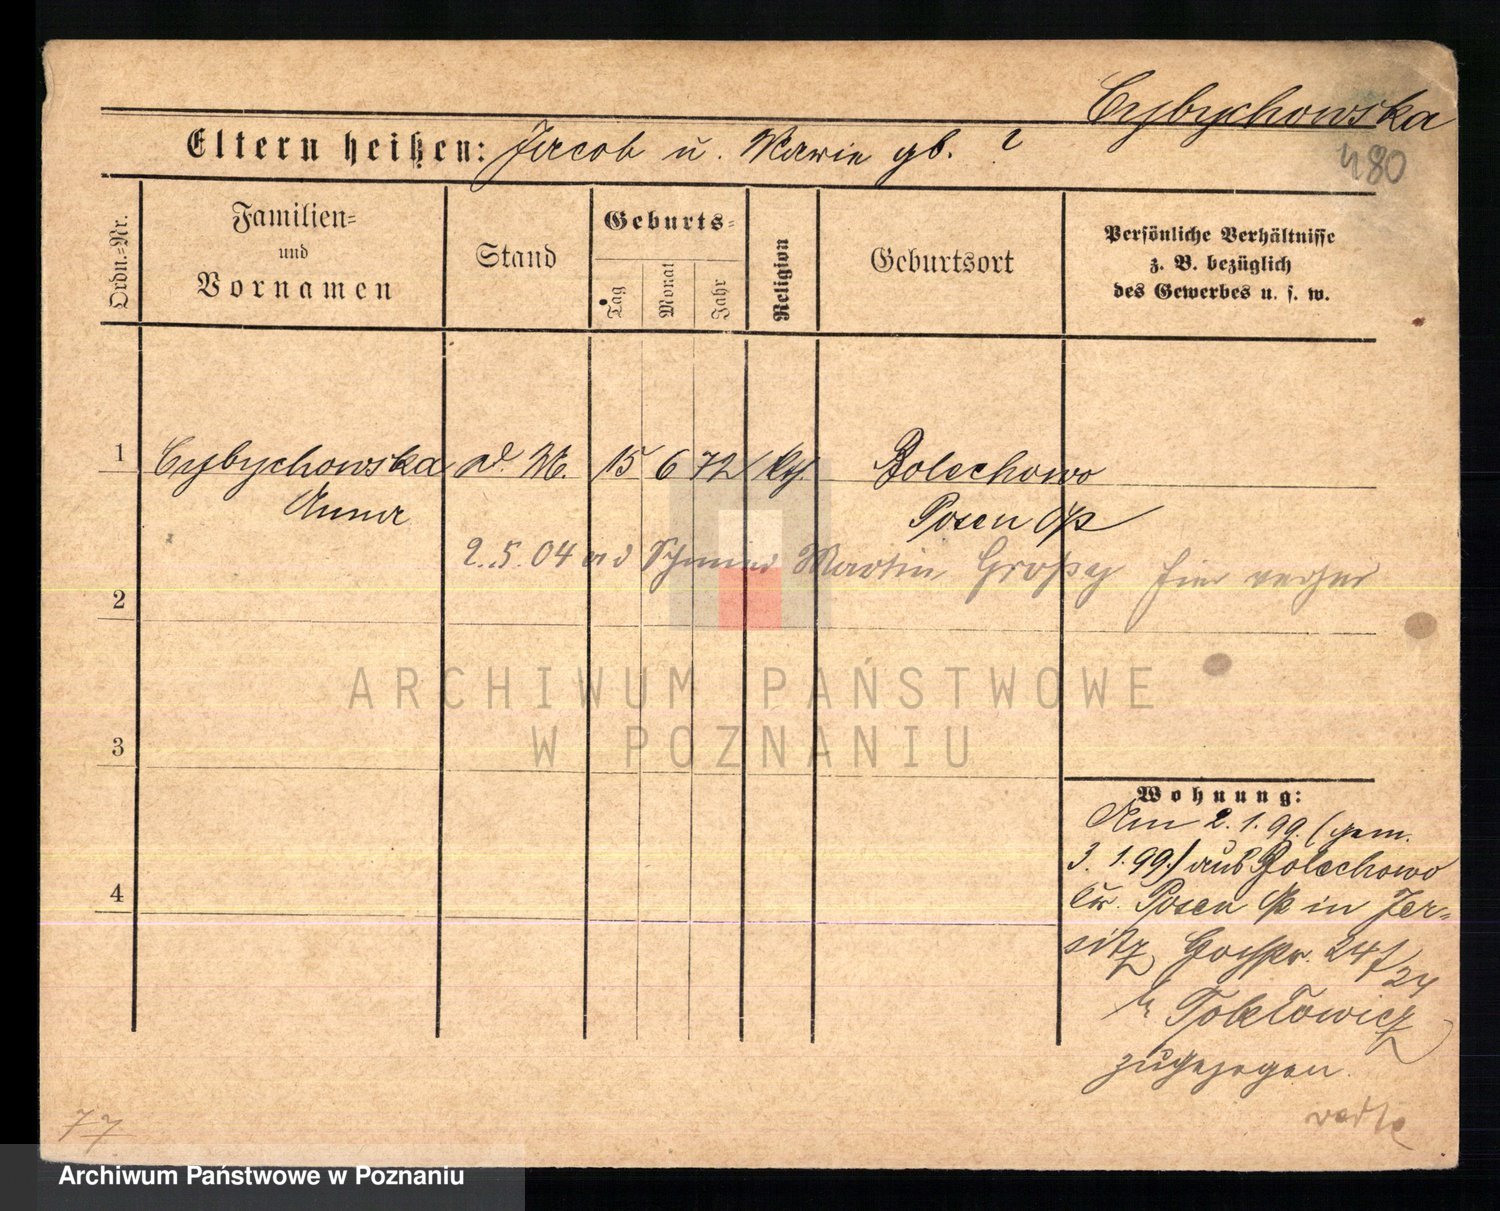 Cybychowska
Eltern heißen: Jacob u. Marie gb. ?
480
Ordn.=Nr.
Familien=
und
Vornamen
Stand
Geburts=
Tag
Monat
Jahr
Religion
Geburtsort
Persönliche Verhältnisse
z. B. bezüglich
des Gewerbes u. s. w.
1 Cybychowska d. M. 15 6 72 kth. Bolechowo
Anna Posen O/
2.5.04 Schmied Martin hier
2
ARCHIWUM PAŃSTWOWE
W POZNANIU
3
Wohnung:
Am 2.1.99. (gem.
3.1.99.) aus Bolechowo
Kr. Posen O/ in Jer=
sitz, 24/24
b Tokłowicz
zugezogen.
4
verte
77
Archiwum Państwowe w Poznaniu